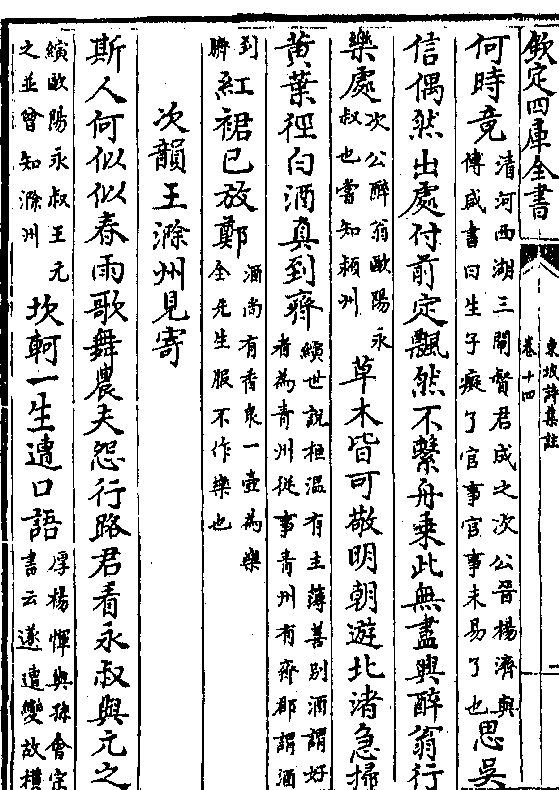 欽定四庫全書
東坡詩集註
卷十四
一
何時竟
清河西湖三閘督君成之次公晉楊濟與
傅咸書曰生子癡了官事官事未易了也
思吳
信偶然出處付前定飄然不繫舟乘此無盡興醉翁行
樂處
次公醉翁歐陽永
叔也嘗知潁州
草木皆可敬明朝遊北渚急掃
黃葉徑白酒真到齊
縯世說桓溫有主薄善别酒謂好
者為青州從事青州有齊郡謂酒
到
臍
紅裙已放鄭
酒尚有香泉一壺為樂
全先生服不作樂也
次韻王滁州見寄
斯人何似似春雨歌舞農夫怨行路君看永叔與元之
縯歐陽永叔王元
之並曾知滁州
坎軻一生遭口語
厚楊惲與孫會宗
書云遂遭變故橫